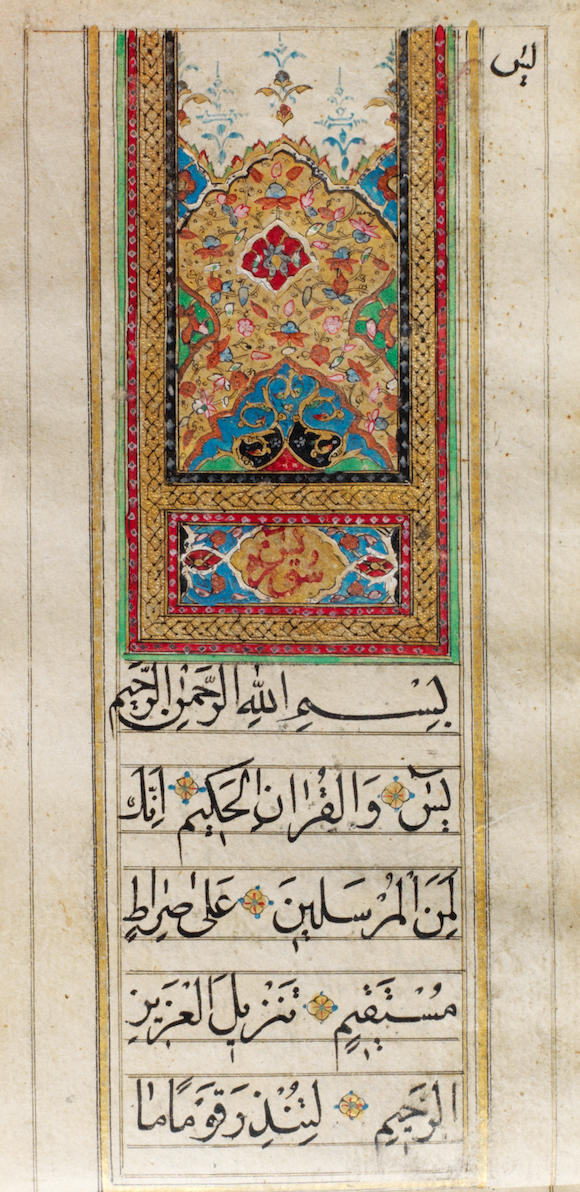 يٰس
سورة يس
بِسْمِ اللّٰهِ الرَّحْمٰنِ الرَّحِيْمِ
يٰسٓ وَالْقُرْاٰنِ الْحَكِيْمِ اِنَّكَ
لَمِنَ الْمُرْسَلِيْنَ عَلٰى صِرَاطٍ
مُسْتَقِيْمٍ تَنْزِيْلَ الْعَزِيْزِ
الرَّحِيْمِ لِتُنْذِرَ قَوْمًا مَا